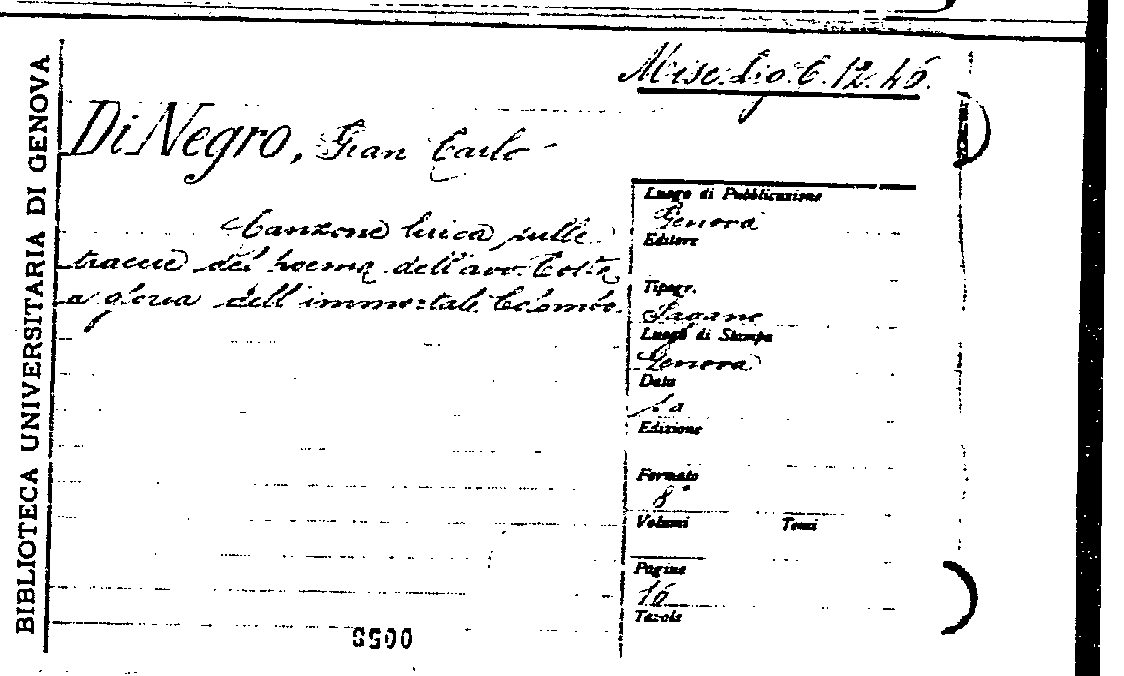 BIBLIOTECA UNIVERSITARIA DI GENOVA
Misc. Lig. C. 12. 46.
Di Negro, Gian Carlo
Canzone lirica sulle
traccie del poema dell'avv. Costa
a gloria dell'immortale Colombo.
Luogo di Pubblicazione
Genova
Editore
Tipogr.
Pagano
Luogo di Stampa
Genova
Data
s.a
Edizione
Formato
8°
Volumi Tomi
Pagine
16
Tavole
0058